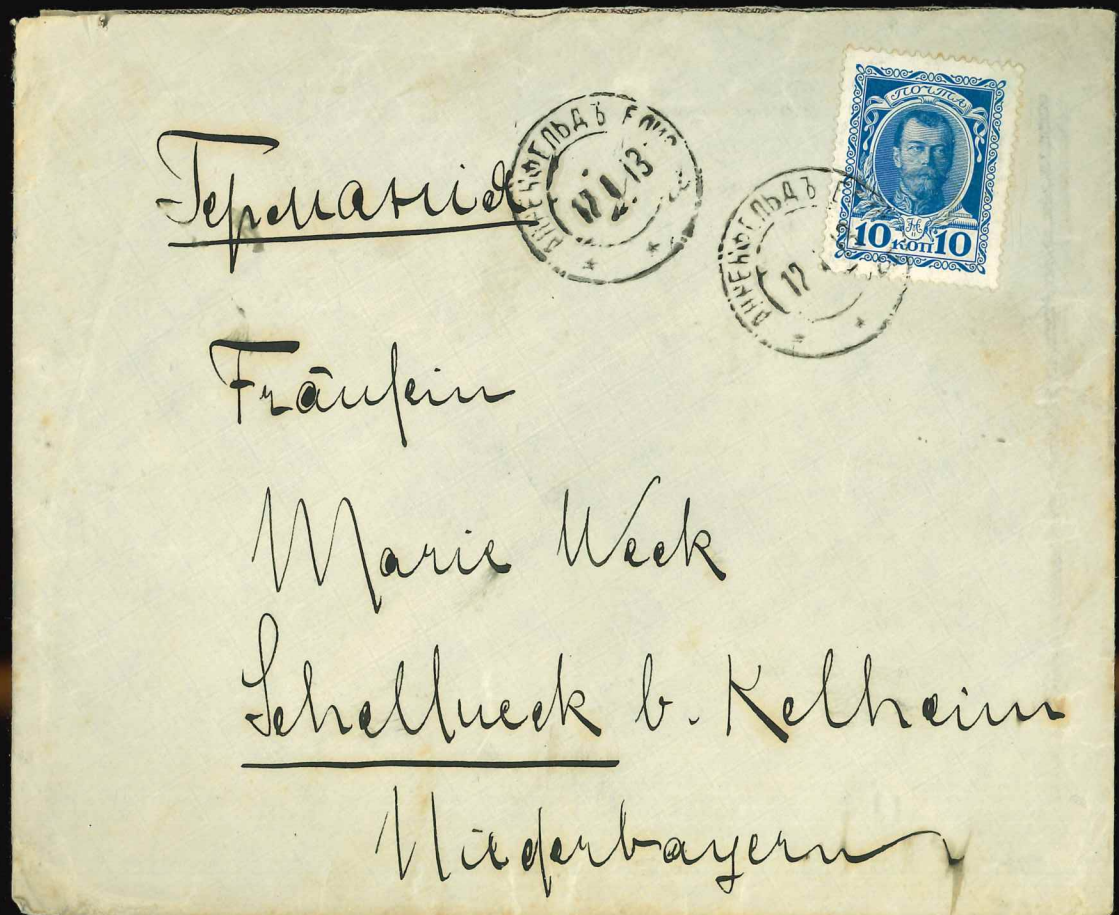 Германія
АННЕНФЕЛЬДЪ
17 13
АННЕНФЕЛЬДЪ
ПОЧТА
10 КОП 10
Fräulein
Marie Weck
Schellneck b. Kelheim
Niederbayern